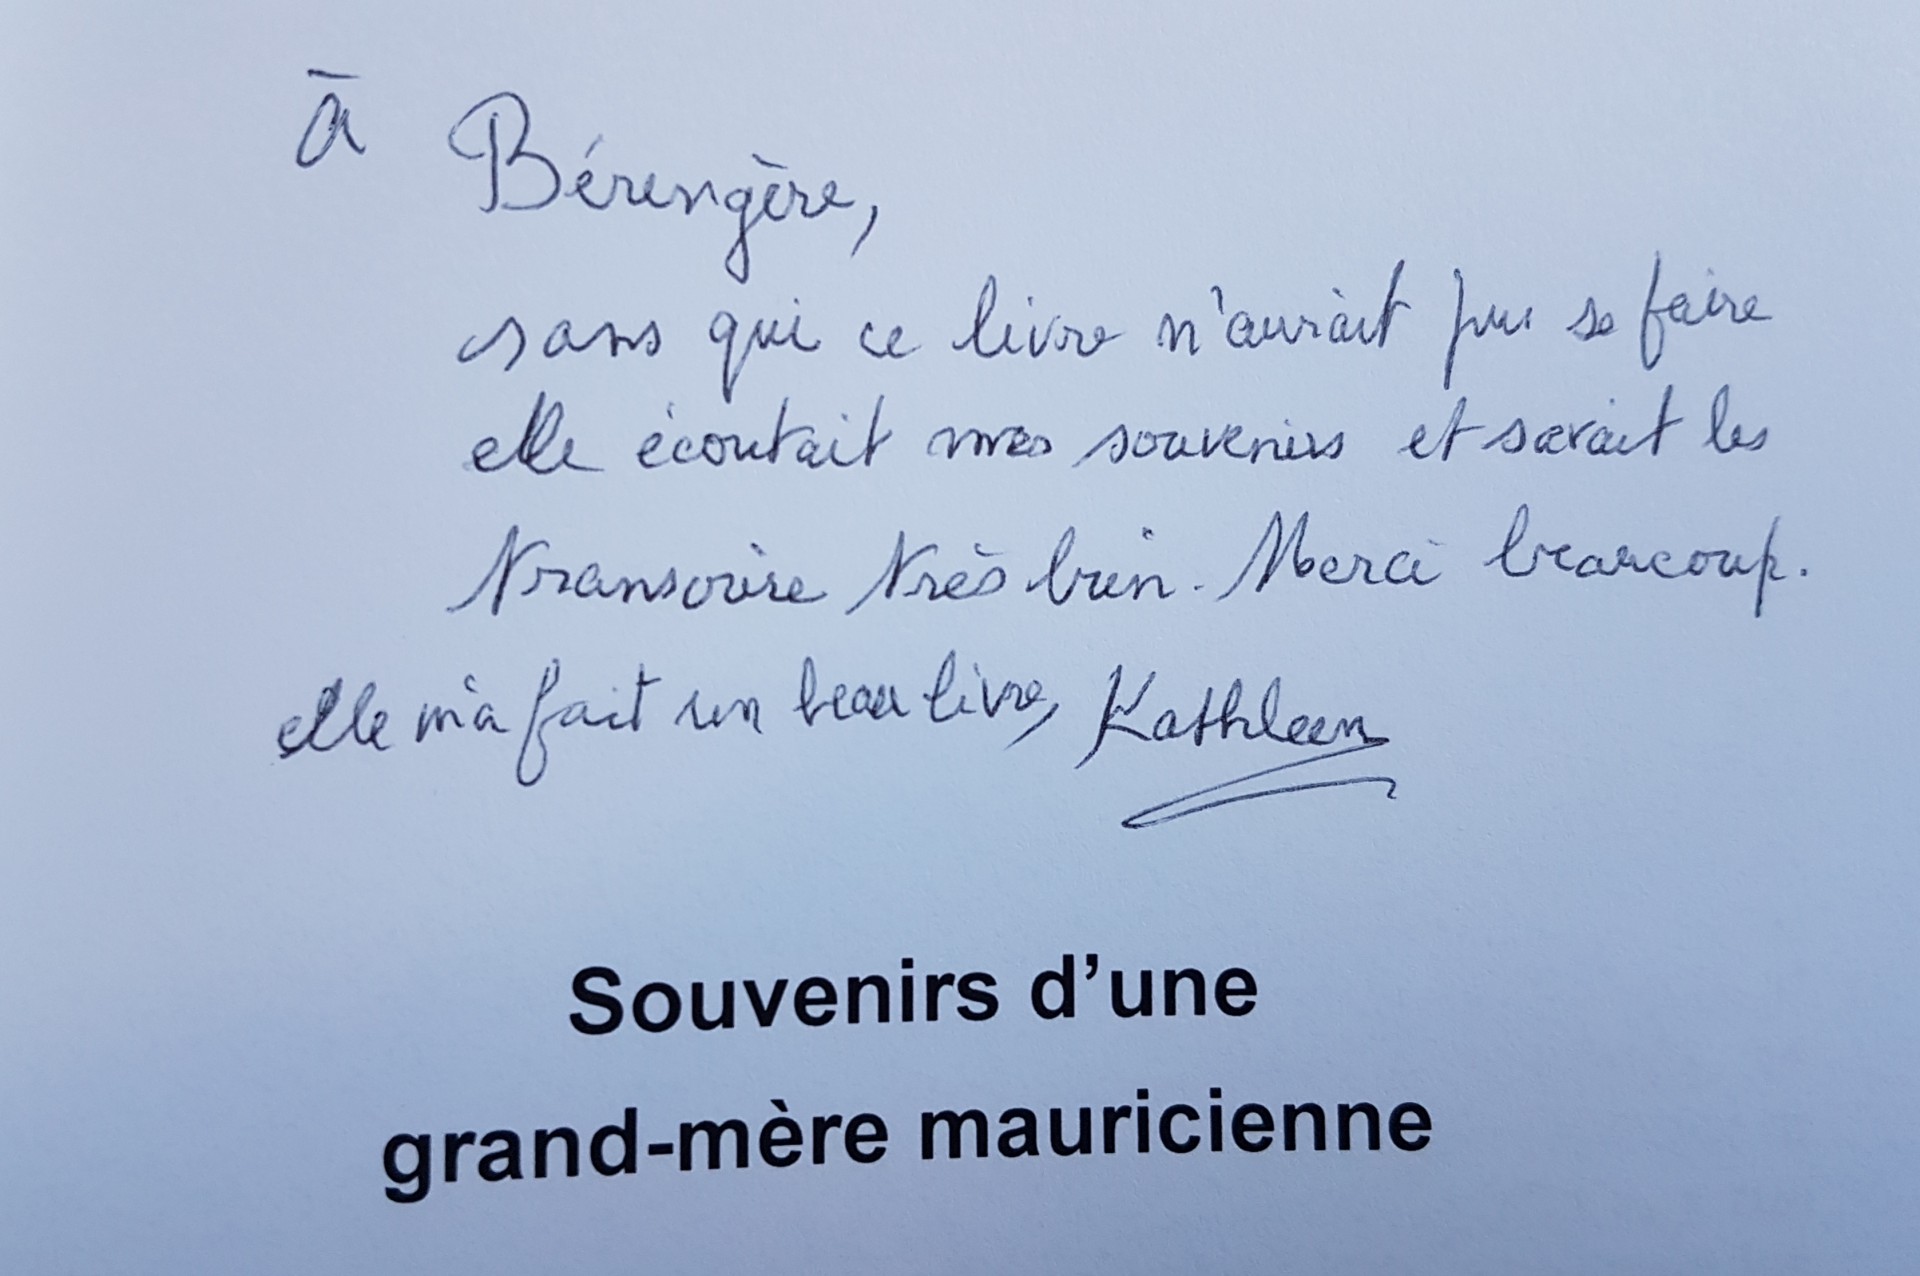 à Bérengère,
sans qui ce livre n'aurait pu se faire
elle écoutait mes souvenirs et savait les
transcrire très bien. Merci beaucoup.
elle m'a fait un beau livre, Kathleen
Souvenirs d'une
grand-mère mauricienne